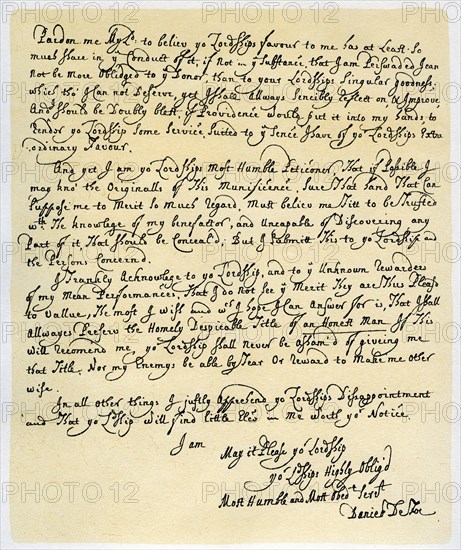 Pardon me My Ld. to believ yo Lordships favour to me has at Least So
much Share in y Conduct of it; if not in y Substance, that I am Perswaded I can
not be more Obliged to y Donor, than to your Lordships Singular goodness.
which tho' I Can not Deserve, yet I shall allways Sencibly Reflect on & Improve.
And Should be Doubly blest, if Providence would put it into my hands to
Render yo Lordship Some Service, Suited to y Sence I have of yo Lordships Extra
ordinary Favour.
And yet I am yo Lordships Most Humble Peticoner, That if Possible I
may kno' the Originalls of This Munificence, Sure That hand That Can
Suppose me to Merit So Much Regard, Must believ me Fitt to be Trusted
wth The Knowlege of my benefactor, and Uncapable of Discovering any
Part of it, That Should be Conceal'd, But I Submitt This to yo Lordship and
the Persons Concernd.
I Frankly Acknowlege to yo Lordship, and to y Unknown Rewarders
of my Mean Performances, That I do Not See y Merit They are Thus Pleasd
to Vallue, The most I wish and wch I hope I Can Answer for is, That I shall
Allwayes Preserv the Homely Despicable Title of an Honest Man. If This
will Recomend me, yo Lordship Shall never be Asham'd of giveing me
that Title, Nor my Enemys be able by Fear Or Reward to Make me other
wise.
In all other things I justly Apprehend yo Lordships Disappointment
and That yo Lship will find little Else in Me worth yo Notice.
I am
May it Please yo Lordship
yo Lships Highly Oblig'd
Most Humble and Most Obedt Servt
Daniel De Foe
PHOTO12